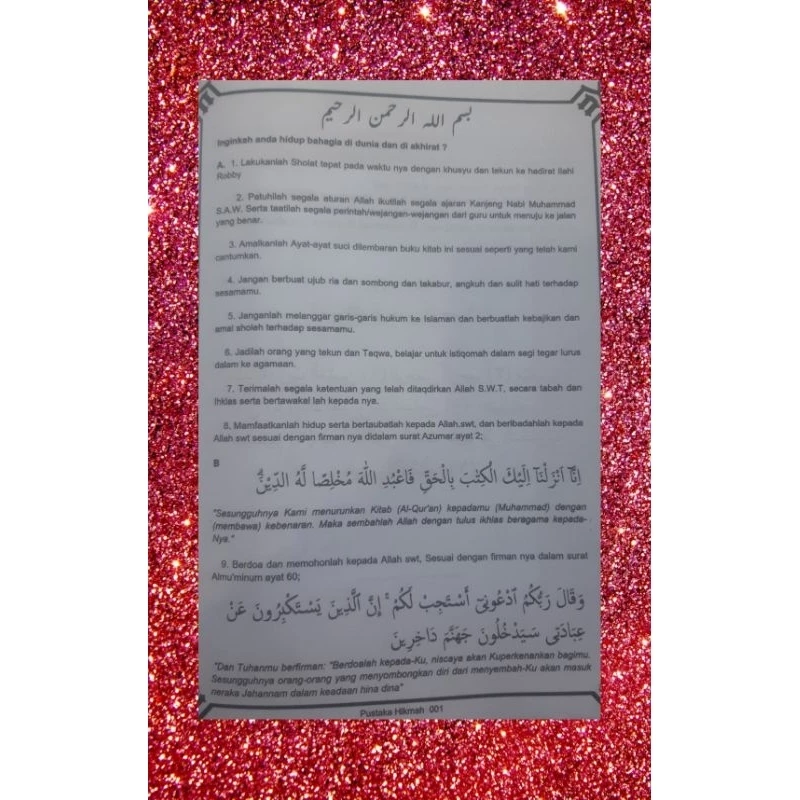 بسم الله الرحمن الرحيم
Inginkah anda hidup bahagia di dunia dan di akhirat ?
A. 1. Lakukanlah Sholat tepat pada waktu nya dengan khusyu dan tekun ke hadirat Ilahi
Robby
2. Patuhilah segala aturan Allah ikutilah segala ajaran Kanjeng Nabi Muhammad
S.A.W. Serta taatilah segala perintah/wejangan-wejangan dari guru untuk menuju ke jalan
yang benar.
3. Amalkanlah Ayat-ayat suci dilembaran buku kitab ini sesuai seperti yang telah kami
cantumkan.
4. Jangan berbuat ujub ria dan sombong dan takabur, angkuh dan sulit hati terhadap
sesamamu.
5. Janganlah melanggar garis-garis hukum ke Islaman dan berbuatlah kebajikan dan
amal sholeh terhadap sesamamu.
6. Jadilah orang yang tekun dan Taqwa, belajar untuk istiqomah dalam segi tegar lurus
dalam ke agamaan.
7. Terimalah segala ketentuan yang telah ditaqdirkan Allah S.W.T, secara tabah dan
Ihklas serta bertawakal lah kepada nya.
8. Mamfaatkanlah hidup serta bertaubatlah kepada Allah.swt, dan beribadahlah kepada
Allah swt sesuai dengan firman nya didalam surat Azumar ayat 2;
B
اِنَّآ اَنْزَلْنَآ اِلَيْكَ الْكِتٰبَ بِالْحَقِّ فَاعْبُدِ اللّٰهَ مُخْلِصًا لَّهُ الدِّيْنَۗ
"Sesungguhnya Kami menurunkan Kitab (Al-Qur'an) kepadamu (Muhammad) dengan
(membawa) kebenaran. Maka sembahlah Allah dengan tulus ikhlas beragama kepada-
Nya."
9. Berdoa dan memohonlah kepada Allah swt, Sesuai dengan firman nya dalam surat
Almu'minum ayat 60;
وَقَالَ رَبُّكُمُ ادْعُونِيٓ أَسْتَجِبْ لَكُمْ ۚ إِنَّ الَّذِينَ يَسْتَكْبِرُونَ عَنْ
عِبَادَتِي سَيَدْخُلُونَ جَهَنَّمَ دَاخِرِينَ
"Dan Tuhanmu berfirman: "Berdoalah kepada-Ku, niscaya akan Kuperkenankan bagimu.
Sesungguhnya orang-orang yang menyombongkan diri dari menyembah-Ku akan masuk
neraka Jahannam dalam keadaan hina dina"
Pustaka Hikmah 001